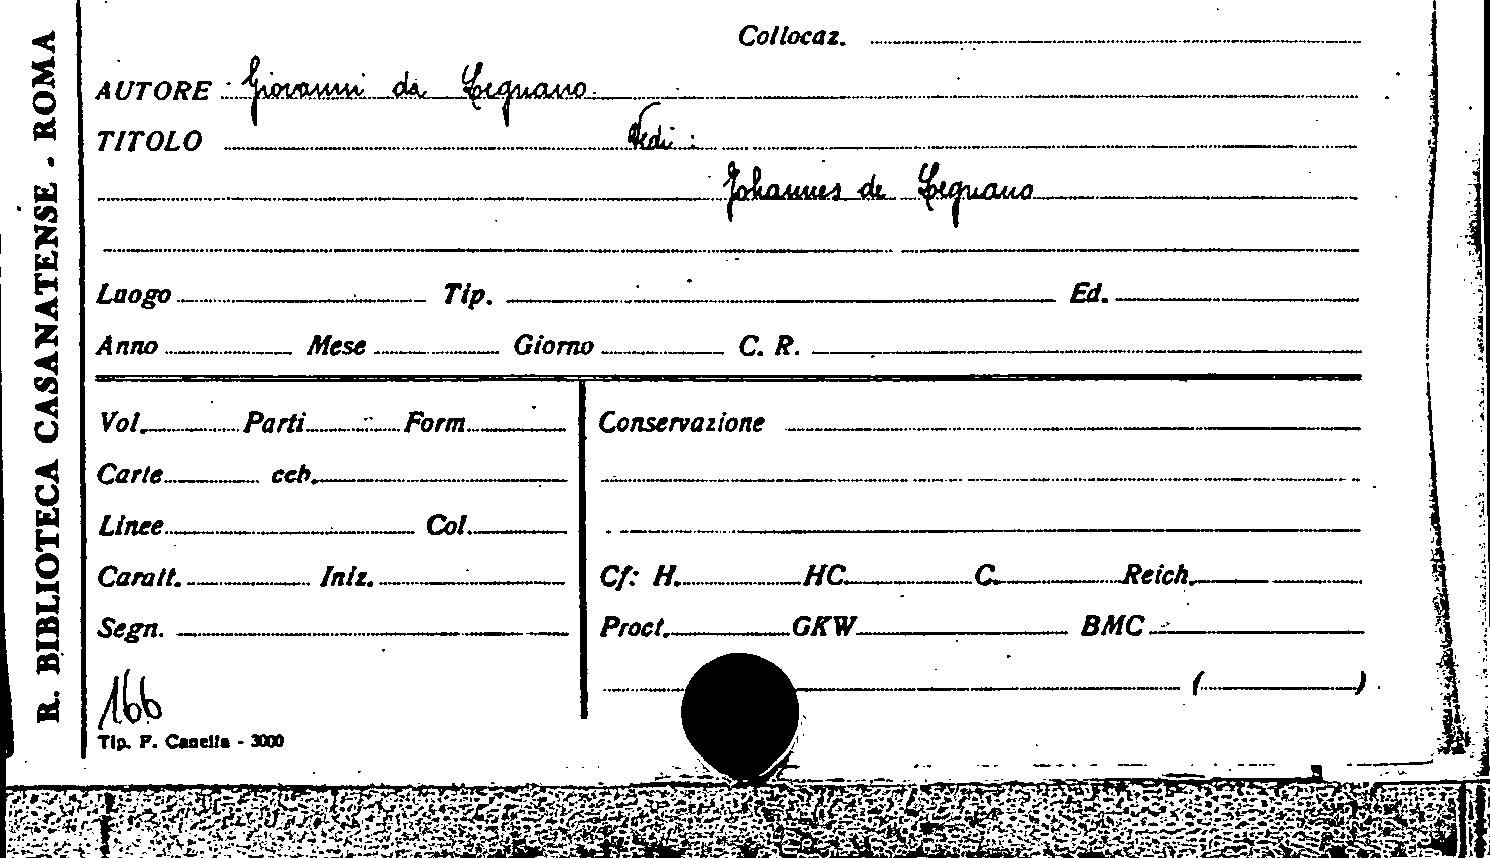 R. BIBLIOTECA CASANATENSE - ROMA
Collocaz.
AUTORE Giovanni da Legnano
TITOLO Vedi :
Johannes de Legnano
Luogo Tip. Ed.
Anno Mese Giorno C. R.
Vol. Parti Form. Conservazione
Carte ccb.
Linee Col.
Caratt. Iniz. Cf: H. HC. C. Reich.
Segn. Proct. GKW BMC
( )
166
Tip. F. Canella - 3000